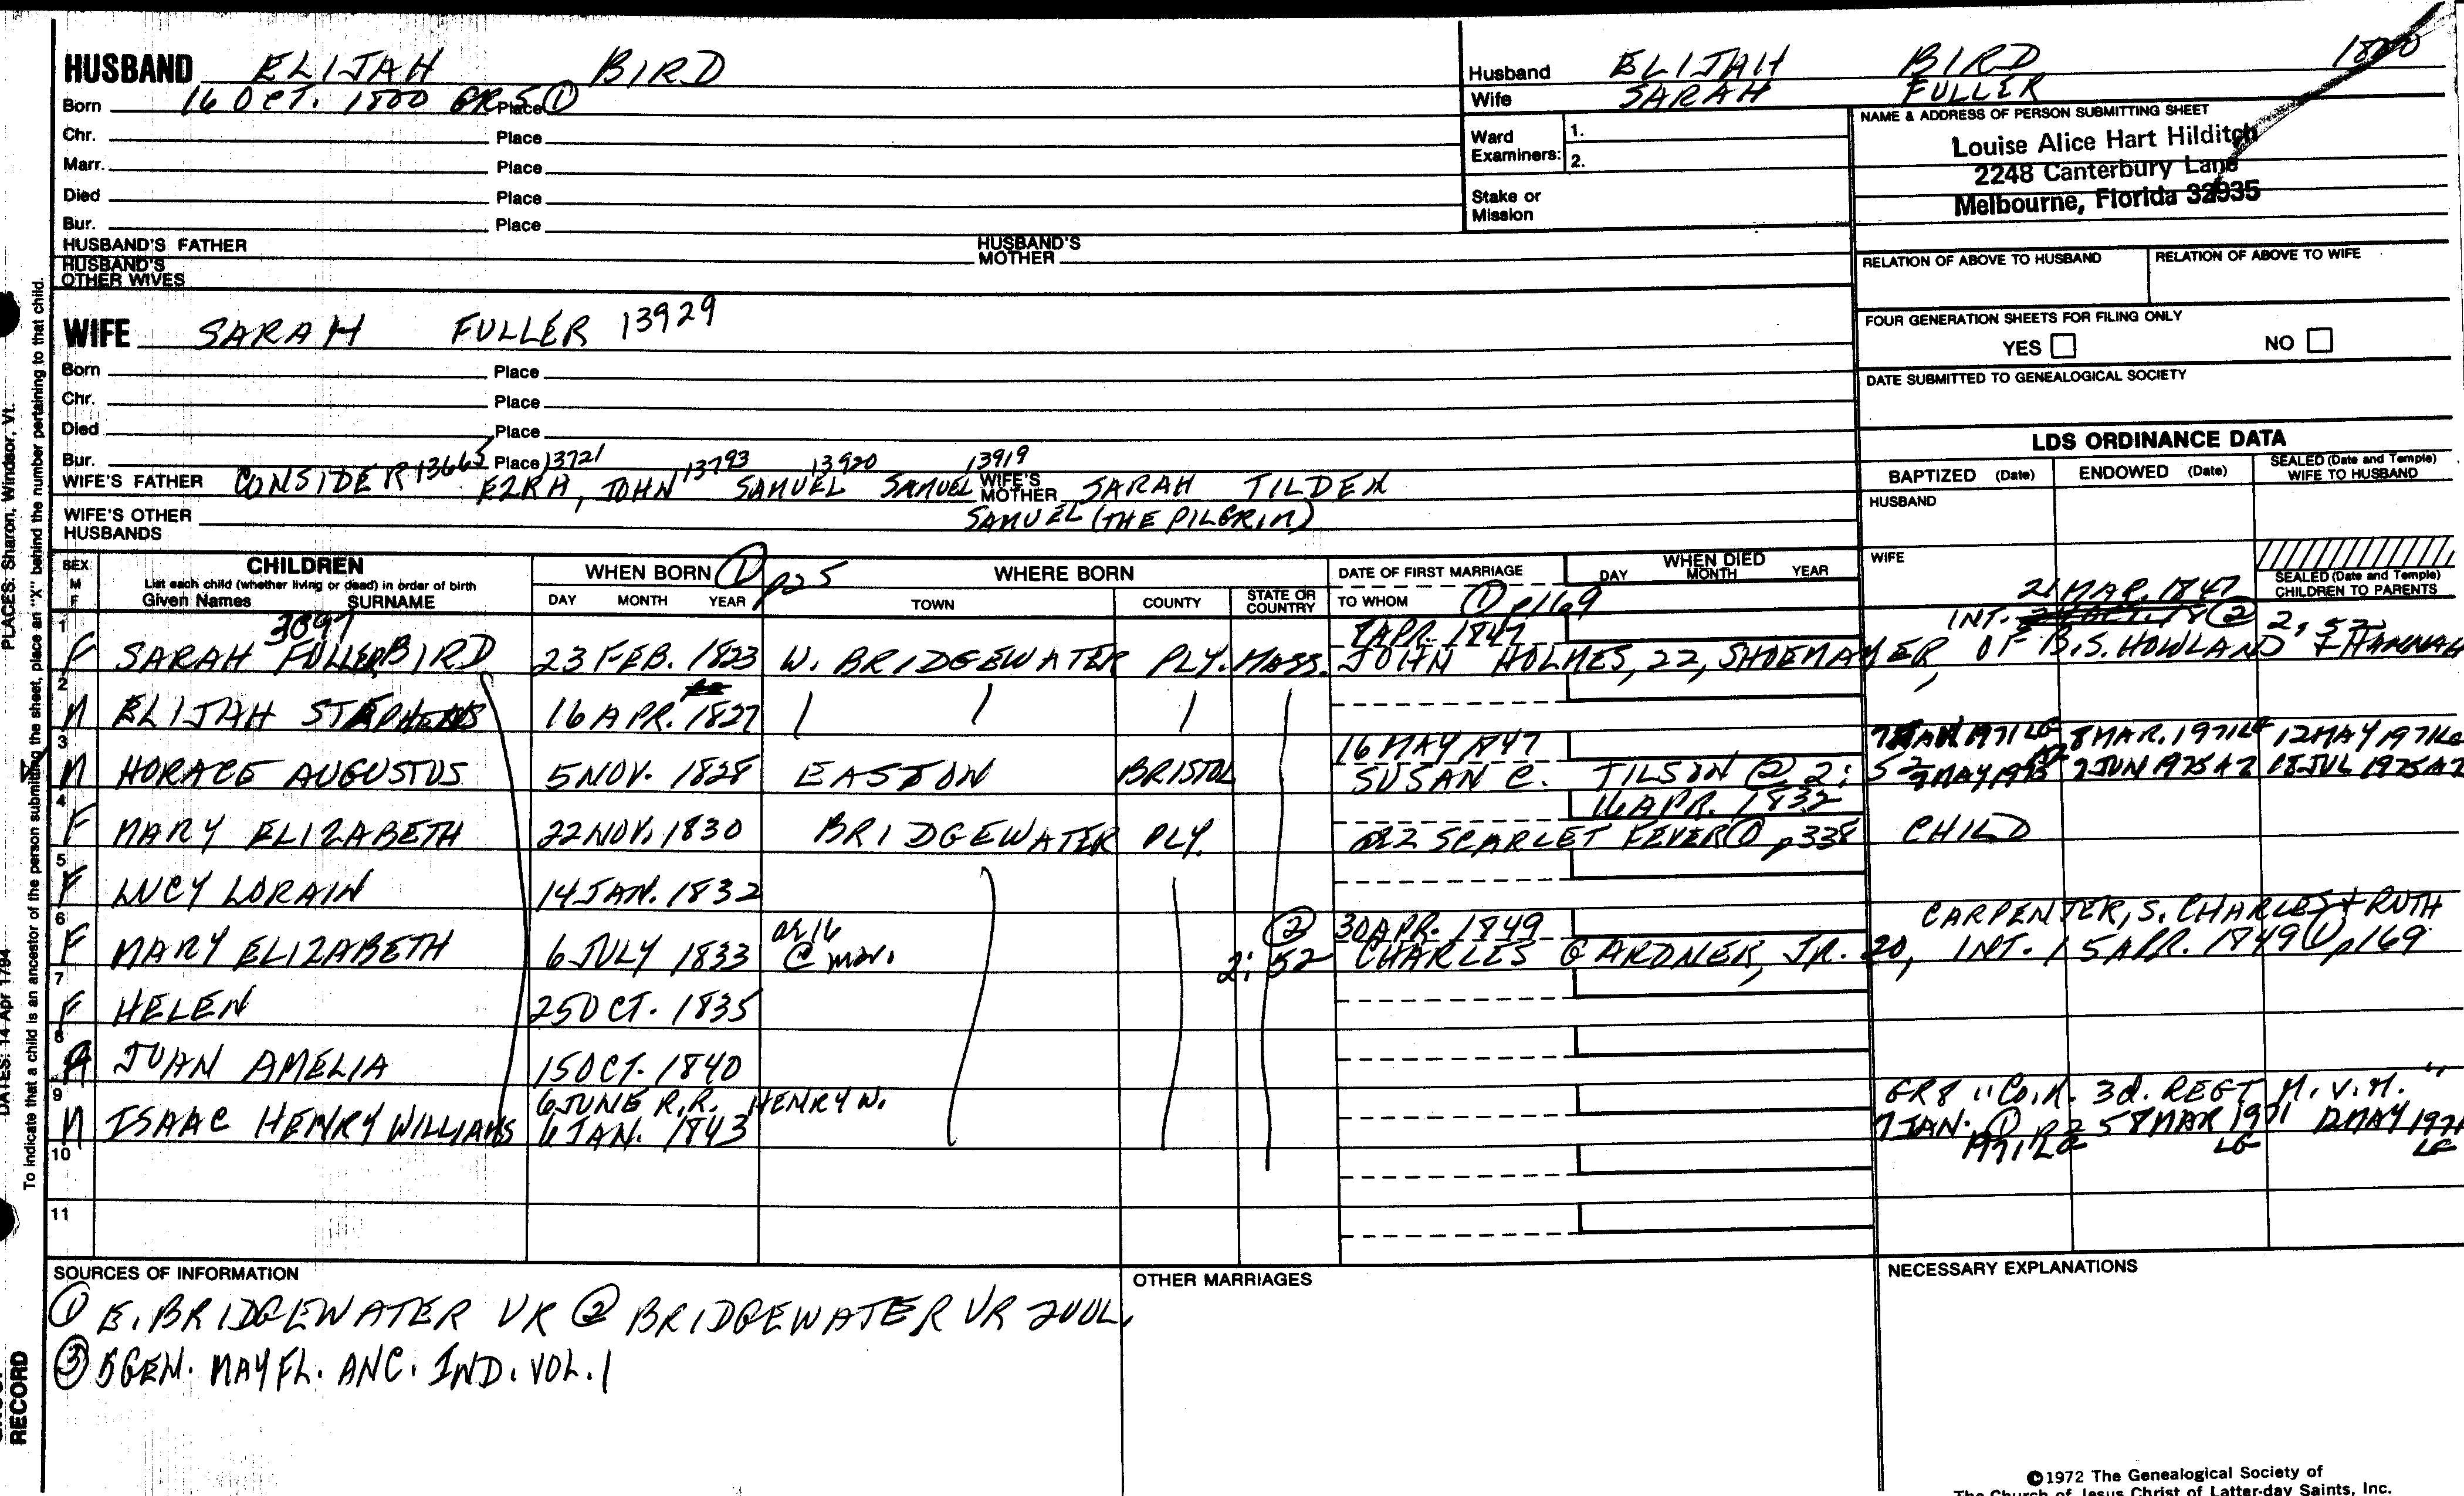 HUSBAND ELIJAH BIRD
Born 16 OCT. 1800 GR5 Place ①
Chr. Place
Marr. Place
Died Place
Bur. Place
HUSBAND'S FATHER HUSBAND'S MOTHER
HUSBAND'S OTHER WIVES
Husband ELIJAH BIRD 1800
Wife SARAH FULLER
Ward Examiners: 1.
2.
Stake or Mission
NAME & ADDRESS OF PERSON SUBMITTING SHEET
Louise Alice Hart Hilditch
2248 Canterbury Lane
Melbourne, Florida 32935
RELATION OF ABOVE TO HUSBAND RELATION OF ABOVE TO WIFE
FOUR GENERATION SHEETS FOR FILING ONLY
YES NO
DATE SUBMITTED TO GENEALOGICAL SOCIETY
WIFE SARAH FULLER 13929
Born Place
Chr. Place
Died Place
Bur. Place
13665 13721 13793 13920 13919
WIFE'S FATHER CONSIDER EZRA, JOHN SAMUEL SAMUEL WIFE'S MOTHER SARAH TILDEN
SAMUEL (THE PILGRIM)
WIFE'S OTHER HUSBANDS
LDS ORDINANCE DATA
BAPTIZED (Date) ENDOWED (Date) SEALED (Date and Temple) WIFE TO HUSBAND
HUSBAND
WIFE
SEALED (Date and Temple) CHILDREN TO PARENTS
SEX M F
CHILDREN
List each child (whether living or dead) in order of birth
Given Names SURNAME
WHEN BORN ① p25
DAY MONTH YEAR
WHERE BORN
TOWN COUNTY STATE OR COUNTRY
DATE OF FIRST MARRIAGE
TO WHOM ① p169
WHEN DIED
DAY MONTH YEAR
21 MAR. 1847
3097 8 APR. 1847 INT. ② 2; 52
1 F SARAH FULLER BIRD 23 FEB. 1823 W. BRIDGEWATER PLY. MASS. JOHN HOLMES, 22, SHOEMAKER, OF B. S. HOWLAND & HANNAH
2 M ELIJAH STEPHENS 16 APR. 1827
16 MAY 1847 8 MAR. 1971 LG 12 MAY 1971 LG
3 M HORACE AUGUSTUS 5 NOV. 1828 EASTON BRISTOL SUSAN C. TILSON ② 2: 52 MAY 1975 2 JUN 1975 AZ 18 JUL 1975 AZ
16 APR. 1832
4 F MARY ELIZABETH 22 NOV. 1830 BRIDGEWATER PLY. SCARLET FEVER ① p338 CHILD
5 F LUCY LORAIN 14 JAN. 1832
ae 16 ② 30 APR. 1849 CARPENTER, S. CHARLES & RUTH
6 F MARY ELIZABETH 6 JULY 1833 @ mar. 2: 52 CHARLES GARDNER, JR. 20, INT. 15 APR. 1849 ① p169
7 F HELEN 25 OCT. 1835
8 JUAN AMELIA 15 OCT. 1840
6 JUNE R.R. HENRY W. GR8 "Co. K. 3d. REGT M. V. M."
9 M ISAAC HENRY WILLIAMS 6 JAN. 1843 7 JAN. 1971 LG 8 MAR 1971 LG 12 MAY 1971 LG
10
11
SOURCES OF INFORMATION
① E. BRIDGEWATER VR ② BRIDGEWATER VR 2 VOL.
③ 5 GEN. MAYFL. ANC. IND. VOL. 1
OTHER MARRIAGES
NECESSARY EXPLANATIONS
©1972 The Genealogical Society of
The Church of Jesus Christ of Latter-day Saints, Inc.
PLACES: Sharon, Windsor, Vt.
DATES: 14 Apr 1794
To indicate that a child is an ancestor of the person submitting the sheet, place an "X" behind the number pertaining to that child.
RECORD